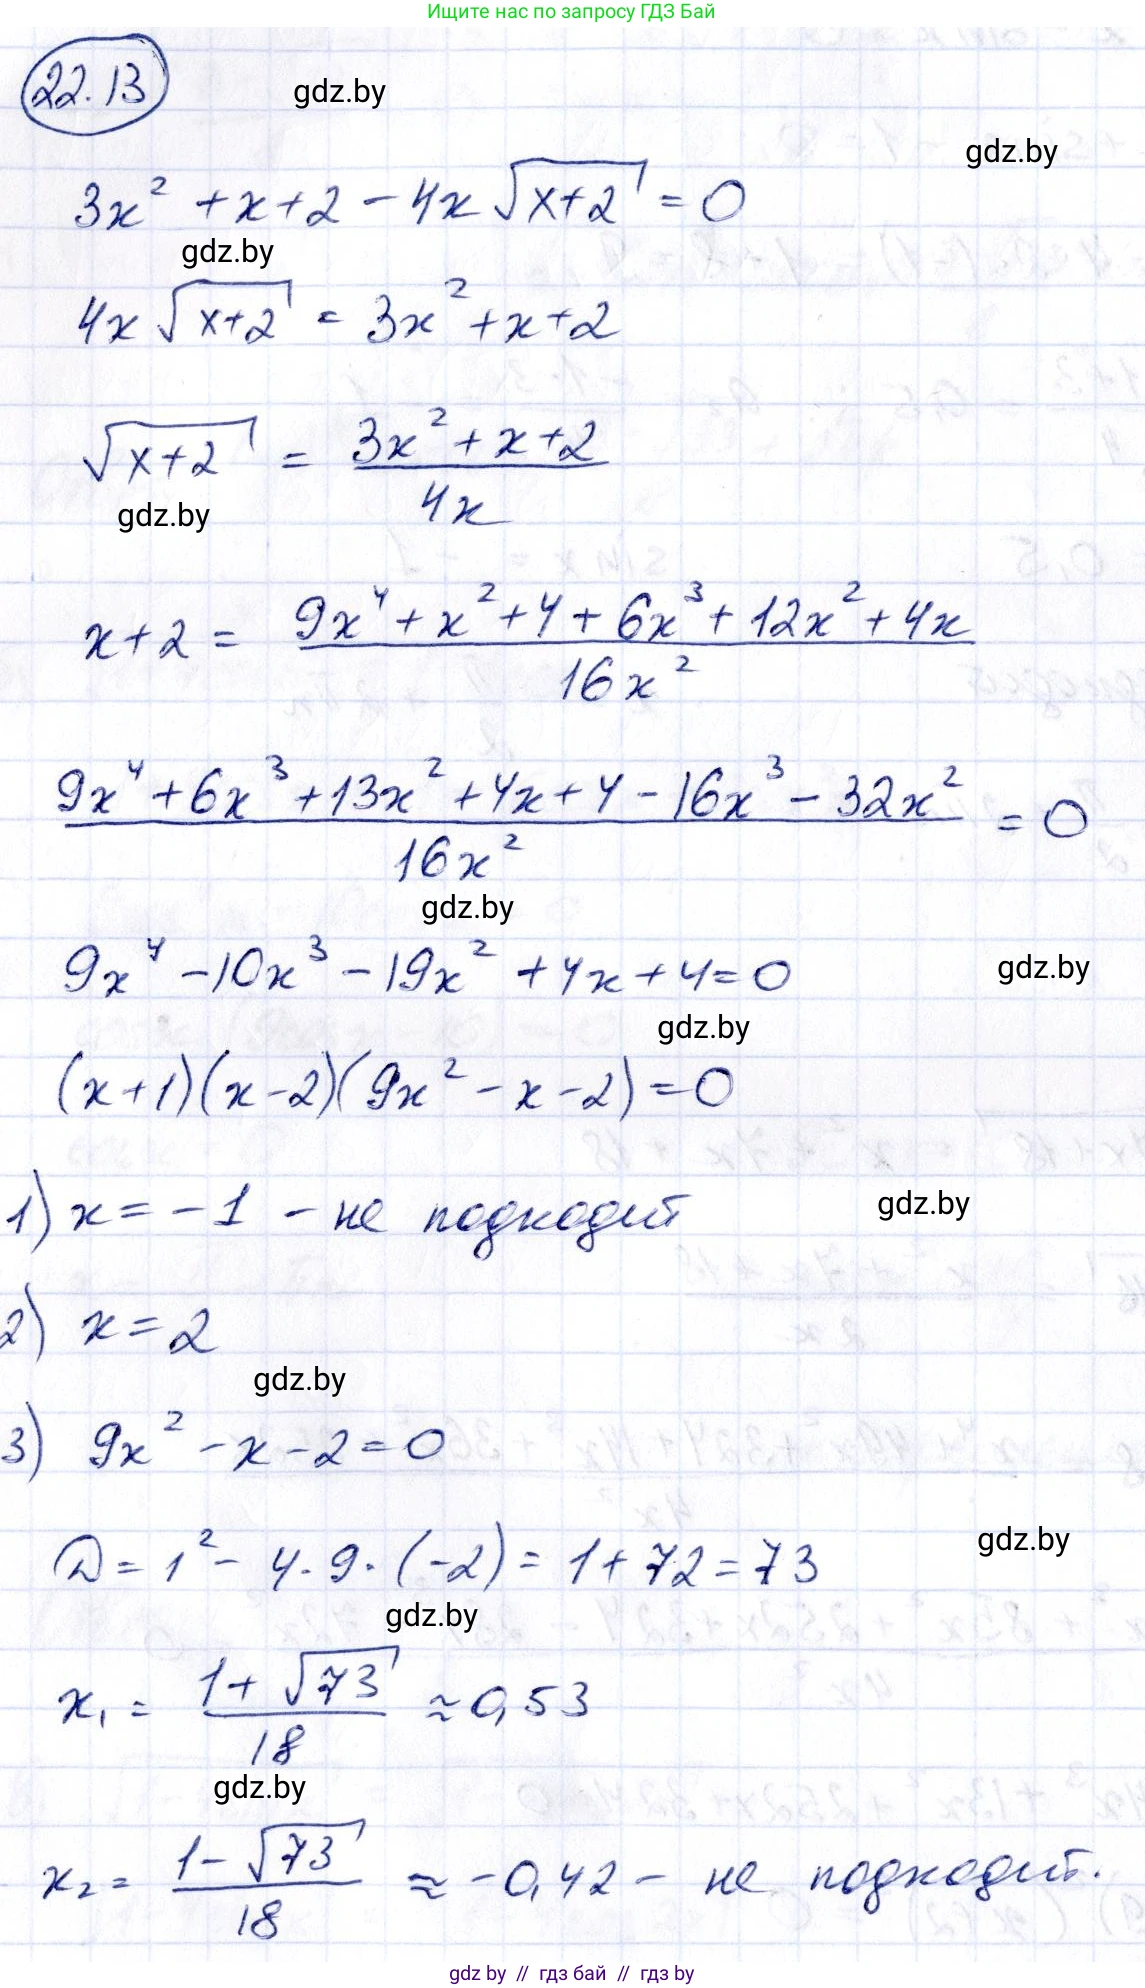 Ищите нас по запросу ГДЗ Бай
22.13
gdz.by
gdz.by
3x² + x + 2 - 4x √(x+2) = 0
gdz.by
4x √(x+2) = 3x² + x + 2
√(x+2) = (3x² + x + 2) / 4x
gdz.by
x + 2 = (9x⁴ + x² + 4 + 6x³ + 12x² + 4x) / 16x²
(9x⁴ + 6x³ + 13x² + 4x + 4 - 16x³ - 32x²) / 16x² = 0
gdz.by
9x⁴ - 10x³ - 19x² + 4x + 4 = 0
gdz.by
gdz.by
(x+1)(x-2)(9x² - x - 2) = 0
1) x = -1 - не подходит
gdz.by
2) x = 2
gdz.by
3) 9x² - x - 2 = 0
D = 1² - 4·9·(-2) = 1 + 72 = 73
gdz.by
gdz.by
x₁ = (1 + √73) / 18 ≈ 0,53
gdz.by
x₂ = (1 - √73) / 18 ≈ -0,42 - не подходит.
gdz by // гдз бай // гдз by